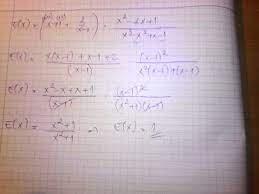 E(x) = (x + 1 + 2/(x-1)) · (x²-2x+1)/(x³-x²+x-1)
E(x) = (x(x-1)+x-1+2)/(x-1) · (x-1)²/(x²(x-1)+(x-1))
E(x) = (x²-x+x+1)/(x-1) · (x-1)²/((x²+1)(x-1))
E(x) = (x²+1)/(x²+1) => E(x) = 1